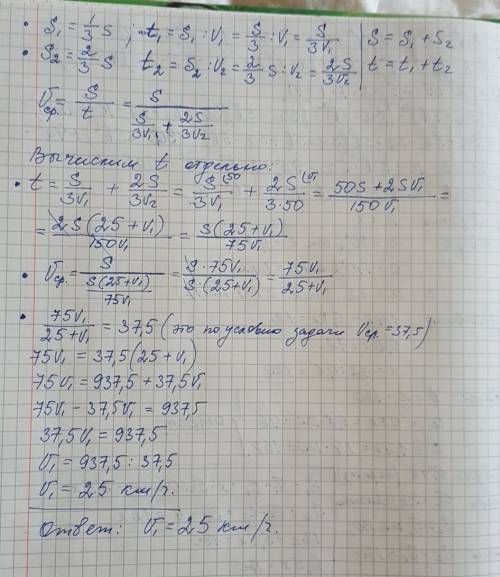 • S₁ = 1/3 S ; t₁ = S₁ : V₁ = S/3 : V₁ = S/3V₁ | S = S₁ + S₂
• S₂ = 2/3 S t₂ = S₂ : V₂ = 2/3 S : V₂ = 2S/3V₂ | t = t₁ + t₂
Vср. = S/t = S/(S/3V₁ + 2S/3V₂)
Вычислим t отдельно:
• t = S/3V₁ + 2S/3V₂ = S(50/3V₁ + 2S(V₁/3·50 = (50S + 2SV₁)/150V₁ =
= 2S(25 + V₁)/150V₁ = S(25 + V₁)/75V₁
• Vср. = S/(S(25+V₁)/75V₁) = S·75V₁/S·(25+V₁) = 75V₁/25+V₁
• 75V₁/25+V₁ = 37,5 (это по условию задачи Vср. = 37,5)
75V₁ = 37,5(25 + V₁)
75V₁ = 937,5 + 37,5V₁
75V₁ - 37,5V₁ = 937,5
37,5V₁ = 937,5
V₁ = 937,5 : 37,5
V₁ = 25 км/г.
Ответ: V₁ = 25 км/г.